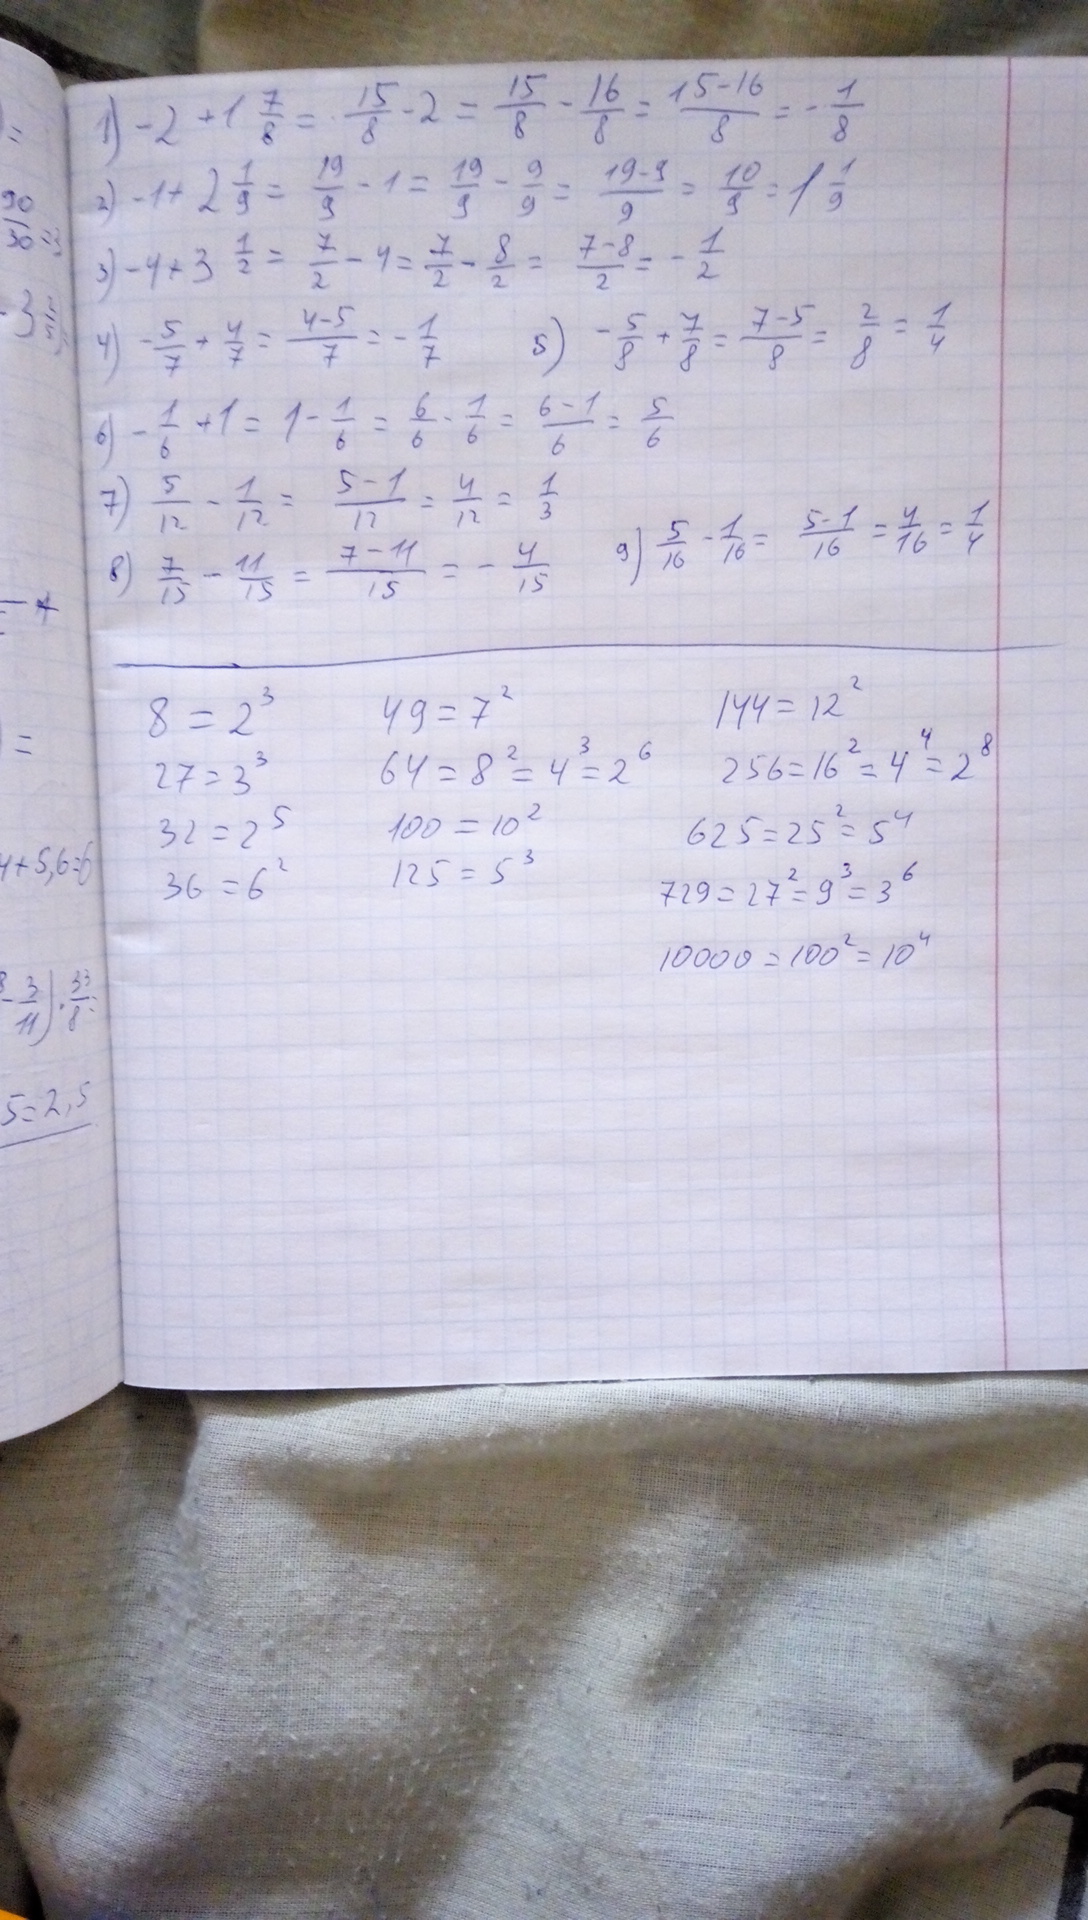 1) -2 + 1 7/8 = 15/8 - 2 = 15/8 - 16/8 = 15-16/8 = - 1/8
2) -1 + 2 1/9 = 19/9 - 1 = 19/9 - 9/9 = 19-9/9 = 10/9 = 1 1/9
3) -4 + 3 1/2 = 7/2 - 4 = 7/2 - 8/2 = 7-8/2 = - 1/2
4) - 5/7 + 4/7 = 4-5/7 = - 1/7
5) - 5/8 + 7/8 = 7-5/8 = 2/8 = 1/4
6) - 1/6 + 1 = 1 - 1/6 = 6/6 - 1/6 = 6-1/6 = 5/6
7) 5/12 - 1/12 = 5-1/12 = 4/12 = 1/3
8) 7/15 - 11/15 = 7-11/15 = - 4/15
9) 5/16 - 1/16 = 5-1/16 = 4/16 = 1/4
8 = 2³
27 = 3³
32 = 2⁵
36 = 6²
49 = 7²
64 = 8² = 4³ = 2⁶
100 = 10²
125 = 5³
144 = 12²
256 = 16² = 4⁴ = 2⁸
625 = 25² = 5⁴
729 = 27² = 9³ = 3⁶
10000 = 100² = 10⁴
4+5,6=6
- 3/11) · 33/8 =
5=2,5